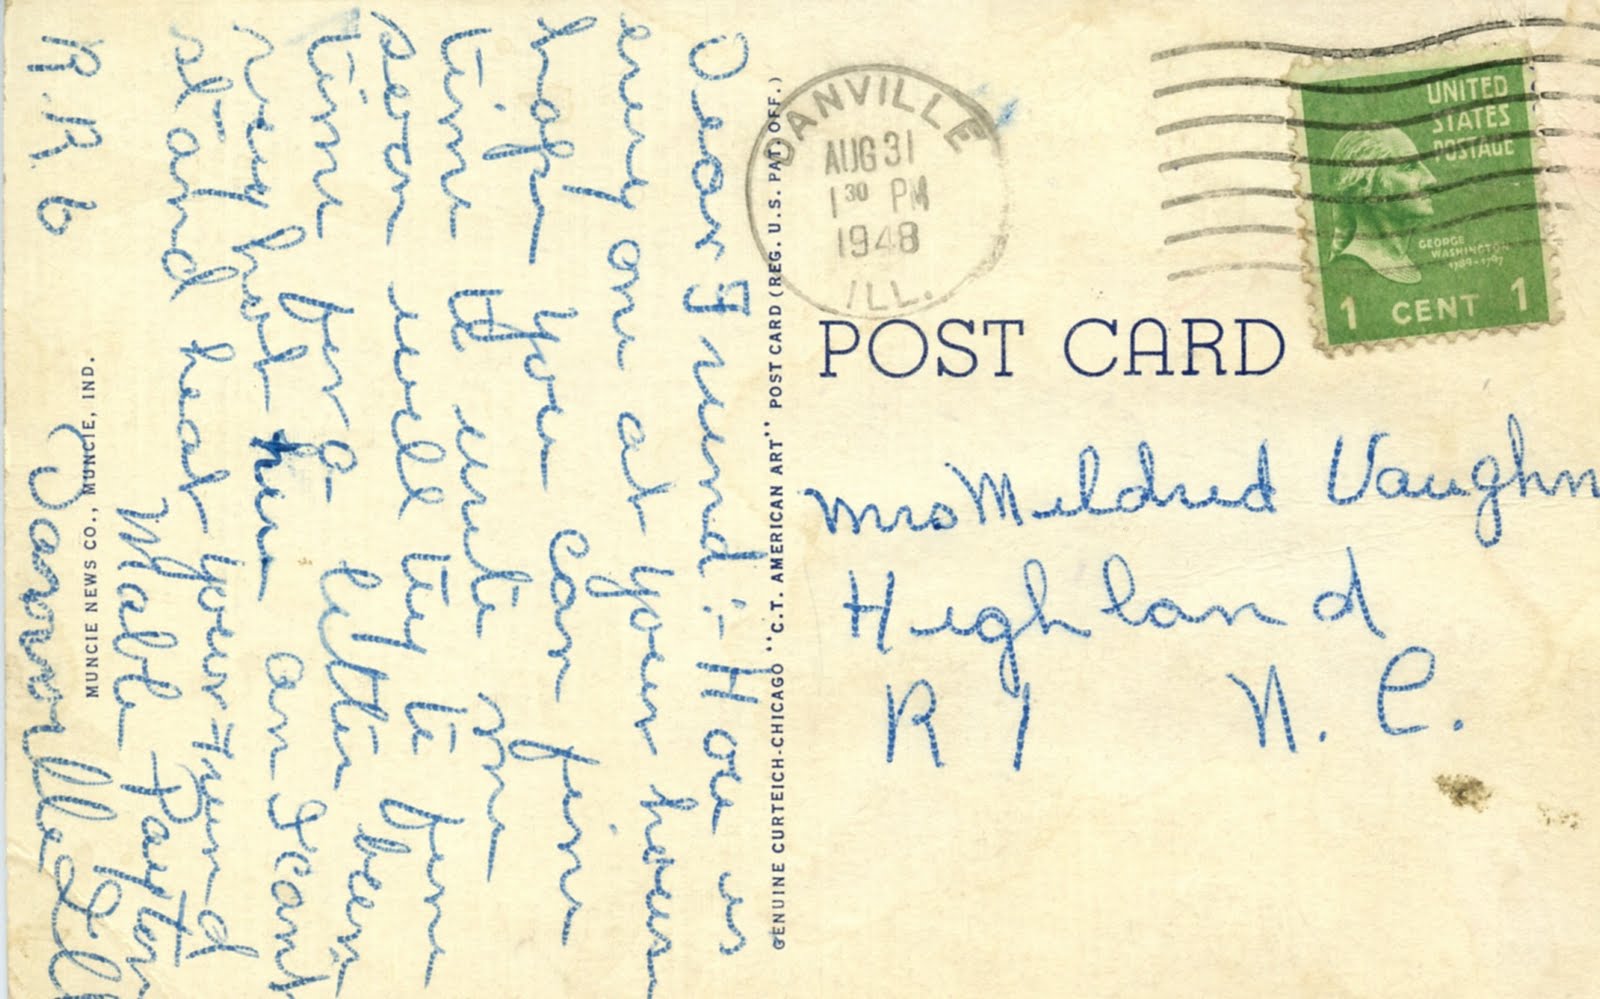 DANVILLE
AUG 31
1 30 PM
1948
ILL.
UNITED
STATES
POSTAGE
GEORGE
WASHINGTON
1789-1797
1 CENT 1
POST CARD
Mrs Mildred Vaughn
Highland
R 1 N. C.
GENUINE CURTEICH-CHICAGO "C.T. AMERICAN ART" POST CARD (REG. U.S. PAT. OFF.)
Dear Friend :- How is
every one at your house
hope you can fine
time to write me
soon will try to fine
time for a letter been
very hot her an I cant
stand heat your Friend
Mable Payton
MUNCIE NEWS CO., MUNCIE, IND.
Danville Ill
R.R 6